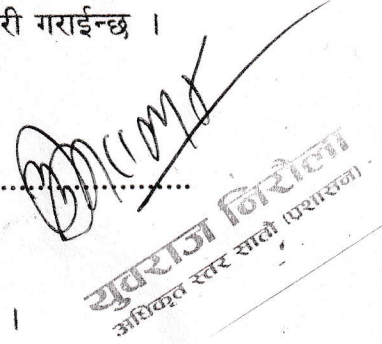 री गराईन्छ ।
................................
युवराज निरौला
अधिकृत स्तर सातौ (प्रशासन)
।